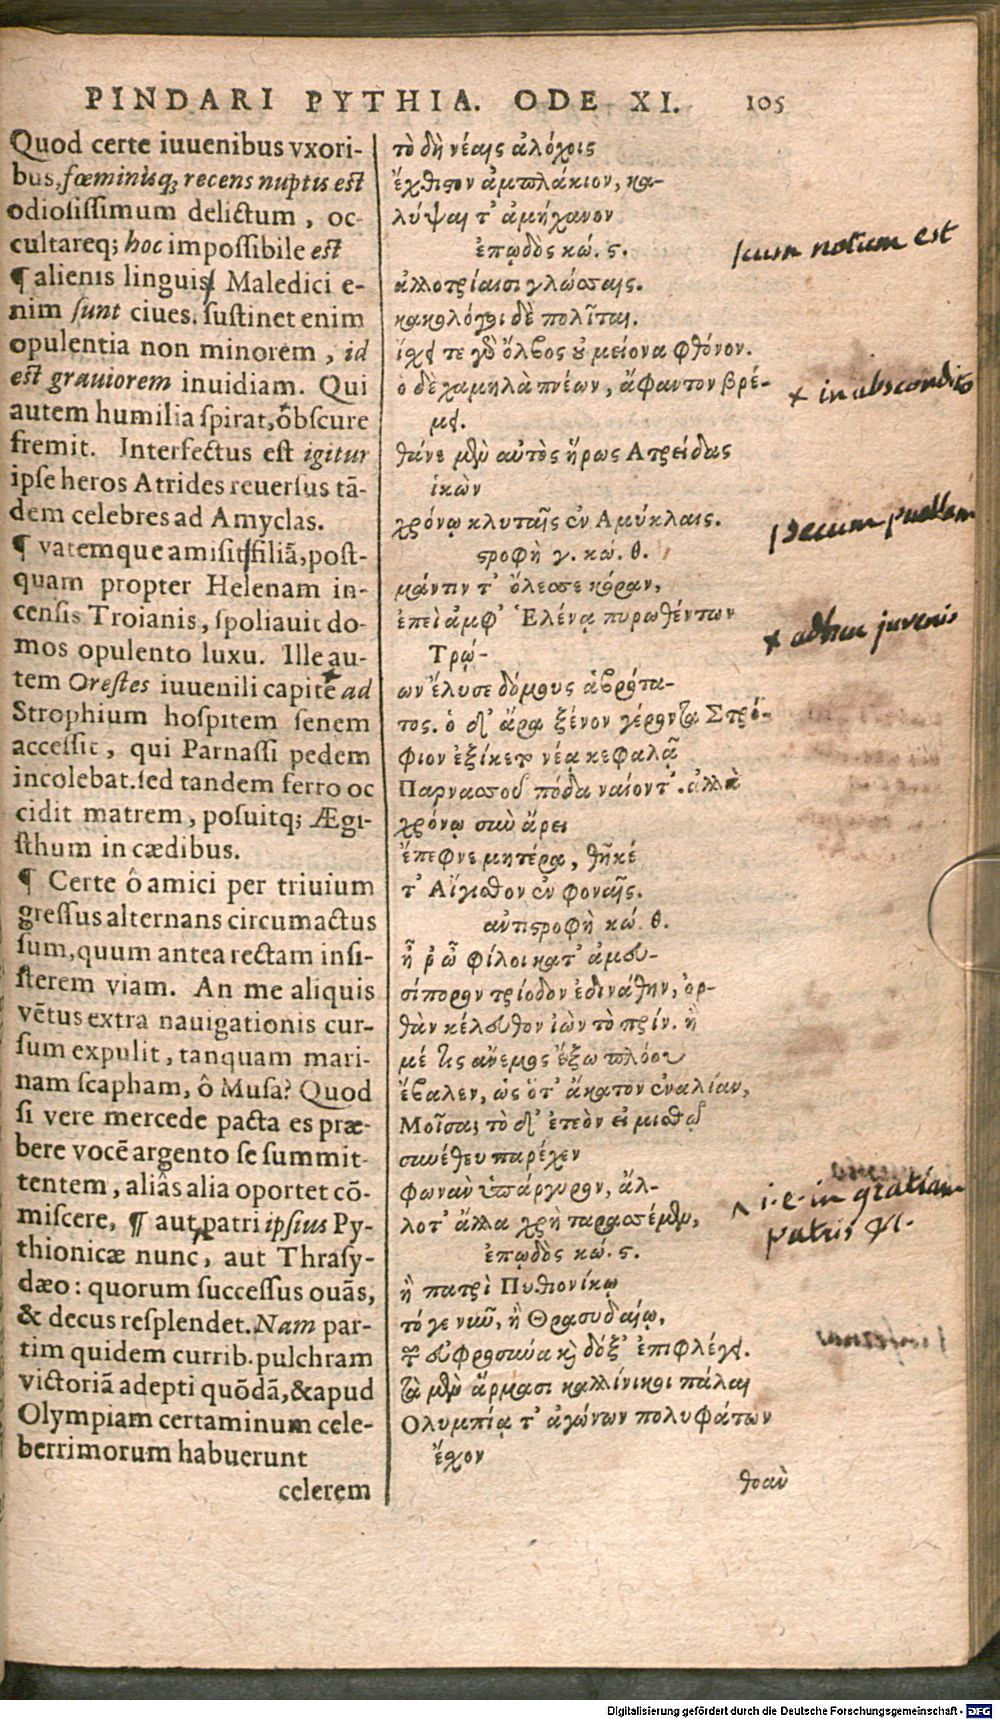 PINDARI PYTHIA. ODE XI. 105
Quod certe iuuenibus vxori-
bus, fœminisq; recens nuptis est
odiosissimum delictum, oc-
cultareq; hoc impossibile est
¶ alienis linguis. Maledici e-
nim sunt ciues. sustinet enim
opulentia non minorem, id
est grauiorem inuidiam. Qui
autem humilia spirat, obscure
fremit. Interfectus est igitur
ipse heros Atrides reuersus tā-
dem celebres ad Amyclas.
¶ vatemque amisit filiā, post-
quam propter Helenam in-
censis Troianis, spoliauit do-
mos opulento luxu. Ille au-
tem Orestes iuuenili capite ad
Strophium hospitem senem
accessit, qui Parnassi pedem
incolebat. sed tandem ferro oc
cidit matrem, posuitq; Ægi-
sthum in cædibus.
¶ Certe ô amici per triuium
gressus alternans circumactus
sum, quum antea rectam insi-
sterem viam. An me aliquis
vētus extra nauigationis cur-
sum expulit, tanquam mari-
nam scapham, ô Musa? Quod
si vere mercede pacta es præ-
bere vocē argento se summit-
tentem, aliâs alia oportet cō-
miscere, ¶ aut patri ipsius Py-
thionicæ nunc, aut Thrasy-
dæo: quorum successus ouās,
& decus resplendet. Nam par-
tim quidem currib. pulchram
victoriā adepti quōdā, & apud
Olympiam certaminum cele-
berrimorum habuerunt
celerem
τὸ δὴ νέαις ἀλόχοις
ἔχθιστον ἀμπλάκιον, κα-
λύψαι τ' ἀμήχανον
ἐπῳδὸς κώ. ς.
ἀλλοτρίαισι γλώσσαις.
κακολόγοι δὲ πολῖται.
ἴχει τε γὸ ὄλβος οὐ μείονα φθόνον.
ὁ δὲ χαμηλὰ πνέων, ἄφαντον βρέ-
μει.
θάνε μὲν αὐτὸς ἥρως Ατρείδας
ἱκὼν
χρόνῳ κλυταῖς ἐν Αμύκλαις.
στροφὴ γ. κώ. θ.
μάντιν τ' ὄλεσσε κόραν,
ἐπεὶ ἀμφ' Ἑλένᾳ πυρωθέντων
Τρώ-
ων ἔλυσε δόμους ἁβρότα-
τος. ὁ δ' ἄρα ξένον γέροντα Στρό-
φιον ἐξίκετο νέᾳ κεφαλᾷ
Παρνασσοῦ πόδα ναίοντ'. ἀλλὰ
χρόνῳ σὺν ἄρει
ἔπεφνε μητέρα, θῆκέ
τ' Αἴγισθον ἐν φοναῖς.
ἀντιστροφὴ κώ. θ.
ἦ ῥ' ὦ φίλοι κατ' ἀμευ-
σίπορον τρίοδον ἐδινάθην, ὀρ-
θὰν κέλευθον ἰὼν τὸ πρίν. ἢ
μέ τις ἄνεμος ἔξω πλόου
ἔβαλεν, ὡς ὅτ' ἄκατον ἐναλίαν,
Μοῖσα; τὸ δ' ἐτεὸν εἰ μισθῷ
συνέθευ παρέχεν
φωνὰν ὑπάργυρον, ἄλ-
λοτ' ἄλλα χρὴ ταρασσέμεν,
ἐπῳδὸς κώ. ς.
ἢ πατρὶ Πυθιονίκῳ
τό γε νῦν, ἢ Θρασυδαίῳ,
τ εὐφροσύνα καὶ δόξ' ἐπιφλέγει.
τὰ μὲν ἅρμασι καλλίνικοι πάλαι
Ολυμπίᾳ τ' ἀγώνων πολυφάτων
ἔχον
θοὰν
suum notum est
+ in abscondito
+ adhuc juvenis
^ i.e. in gratiam
patris
Digitalisierung gefördert durch die Deutsche Forschungsgemeinschaft - DFG